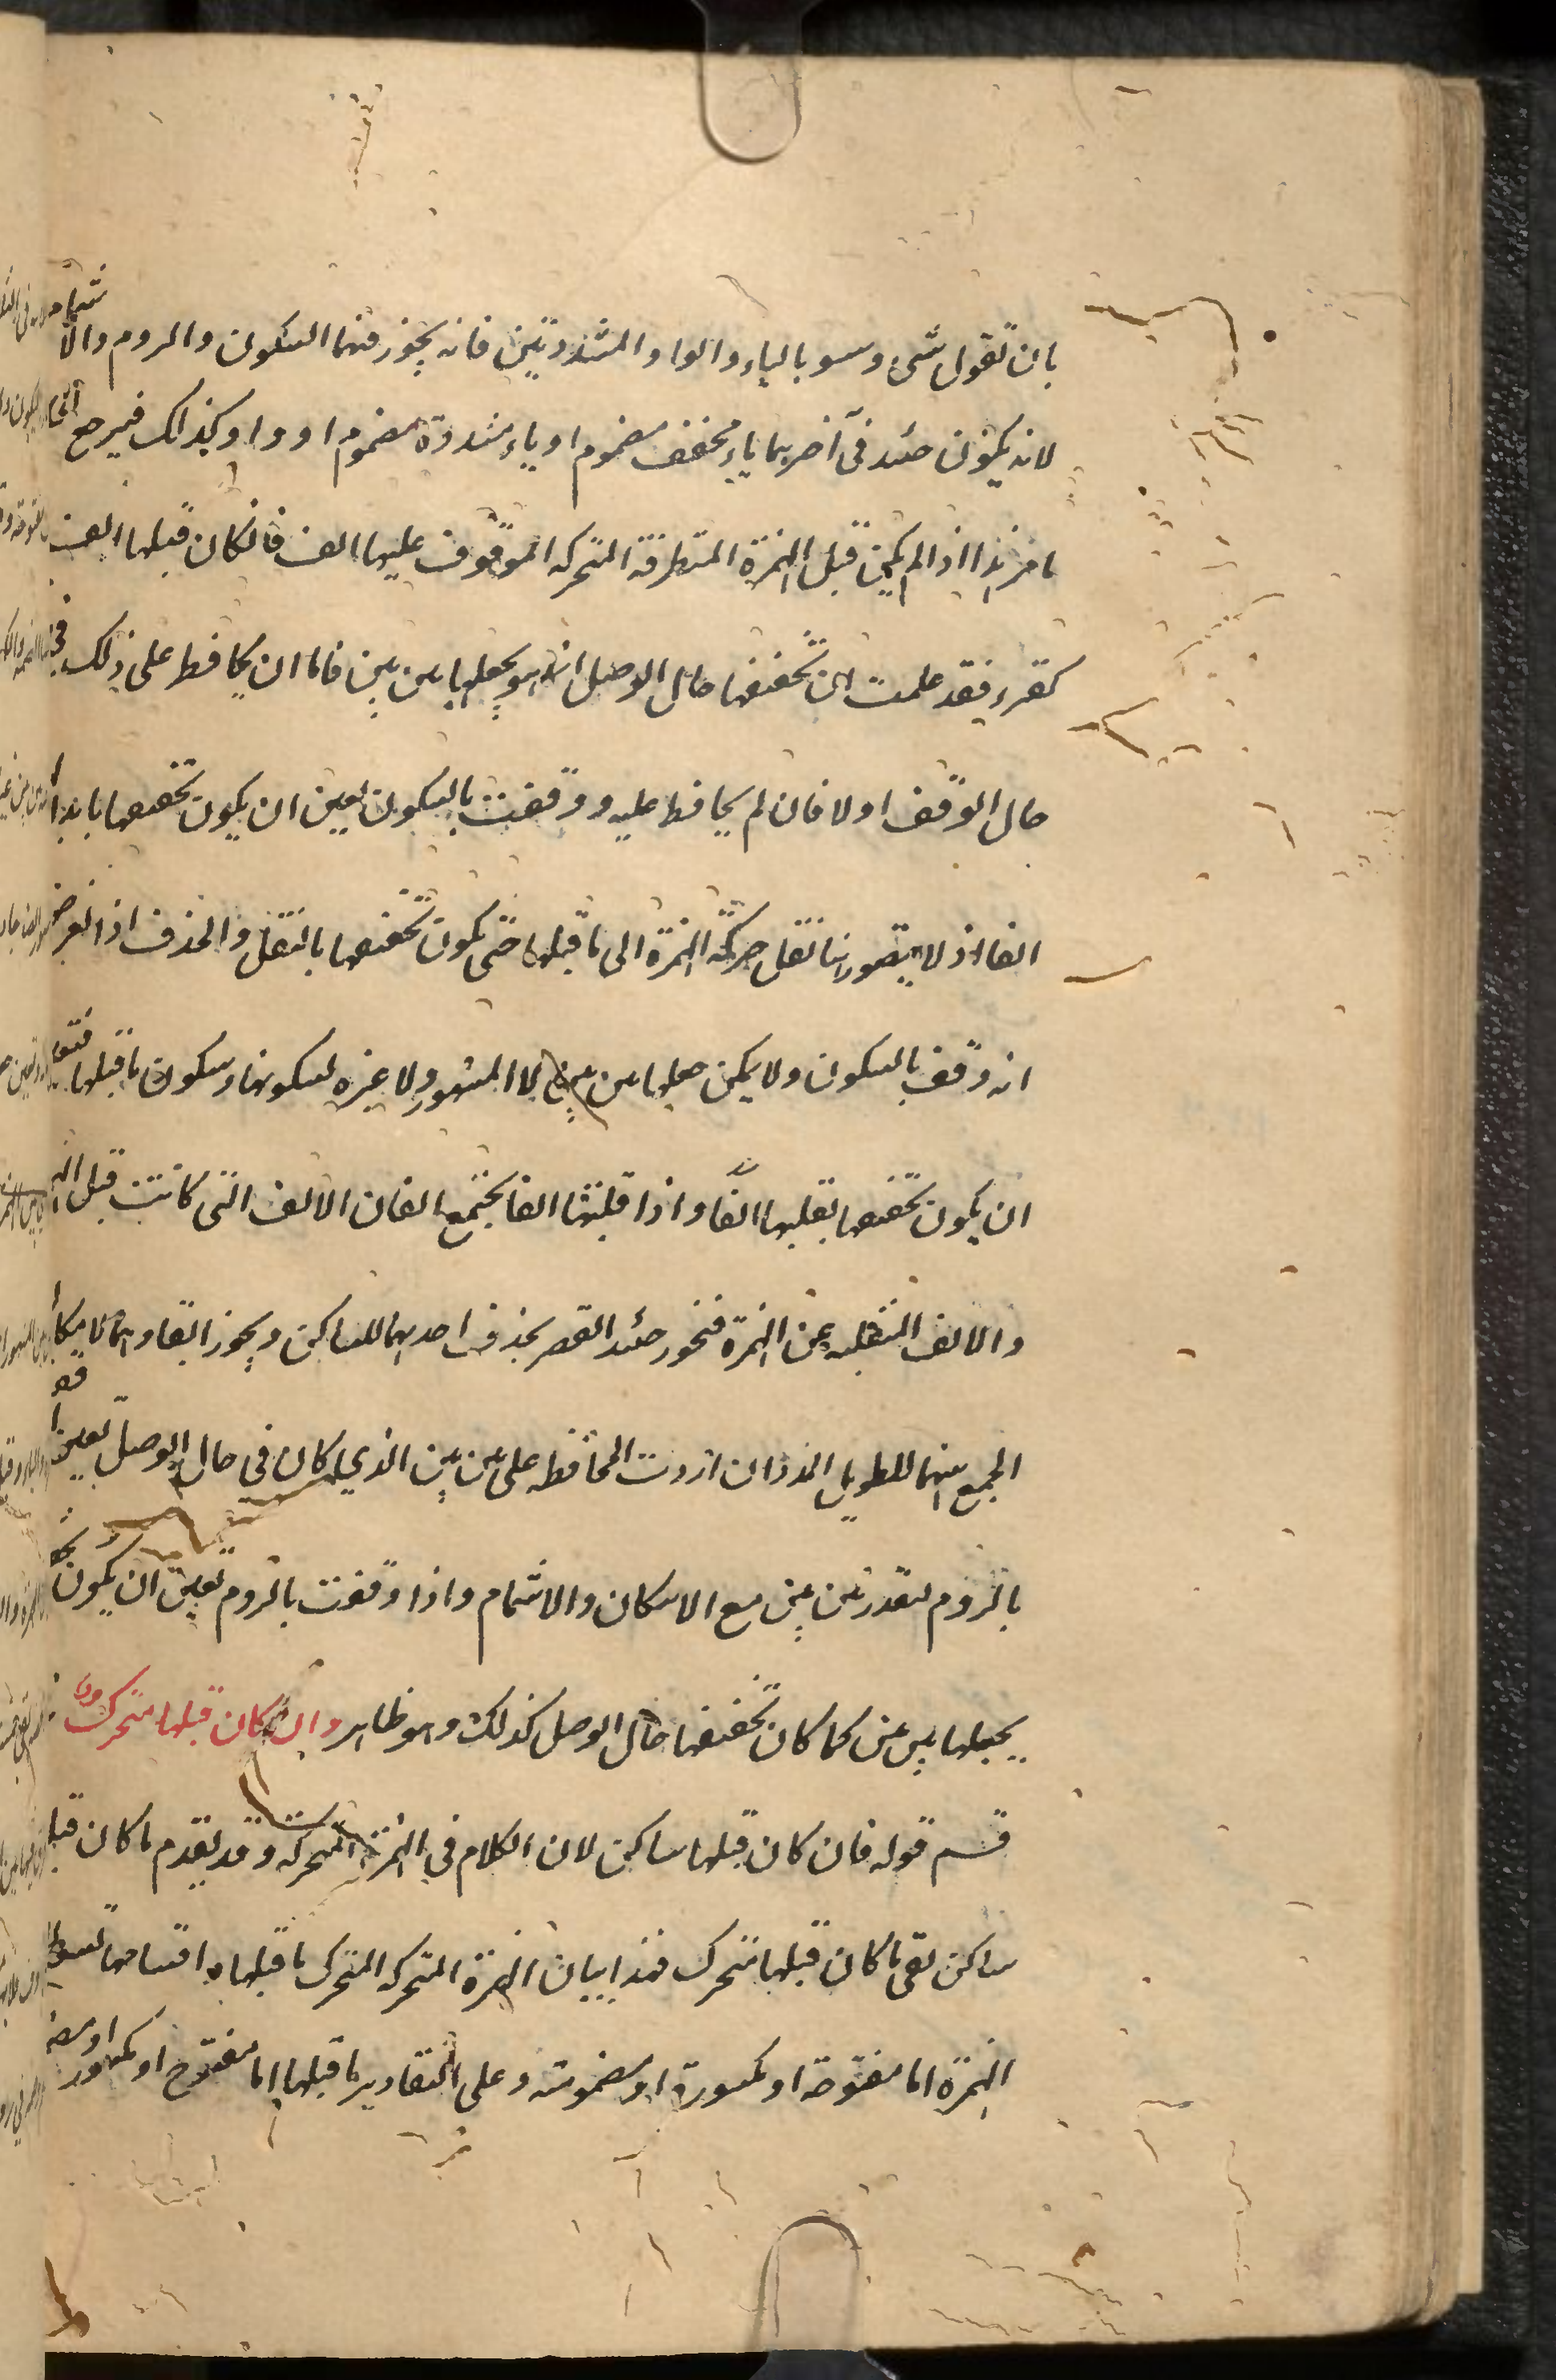 بان تقول شي وسو بالياء والواو المشددتين فانه يجوز فيهما السكون والروم والاشمام
لانه يكون حئند في آخرهما ياء مخفف مضموم او ياء مشددة مضموم او واو كذلك فيرجع الى
ما مر هذا اذا لم يكن قبل الهمزة المتطرفة المتحركه الموقوف عليها الف فان كان قبلها الف
كقراء فقد علمت ان تخفيفها حال الوصل انما هو بجعلها بين بين فاما ان يحافظ على ذلك في
حال الوقف اولا فان لم يحافظ عليه ووقفت بالسكون تعين ان يكون تخفيفها بابدالها
الفا اذ لا يتصور هنا نقل حركة الهمزة الى ما قبلها حتى يكون تخفيفها بالنقل والحذف اذ الغرض
انه وقف بالسكون ولا يمكن جعلها بين بين لا المشهور ولا غيره لسكونها وسكون ما قبلها فتعين
ان يكون تخفيفها بقلبها الفا واذا قلبتها الفا يجتمع الفان الالف التي كانت قبل الهمزة
والالف المنقلبه عن الهمزة فيجوز حئند القصر بحذف احديهما للساكن ويجوز ابقاوهما لامكان
الجمع بينهما للطويل المد وان اردت المحافظه على بين بين الذي كان في حال الوصل تعين الوقف
بالروم لتعذر بين بين مع الاسكان والاشمام واذا وقفت بالروم تعين ان يكون تخفيفها
بجعلها بين بين كما كان تخفيفها حال الوصل كذلك وهو ظاهر وان كان قبلها متحرك
قسم قوله فان كان قبلها ساكن لان الكلام في الهمزة المتحركه وقد تقدم ما كان قبلها
ساكن بقي ما كان قبلها متحرك فهذا بيان الهمزة المتحركه المتحرك ما قبلها واقسامها تسعة
الهمزة اما مفتوحة او مكسورة او مضمومة وعلى التقادير ما قبلها اما مفتوح او مكسور او مضموم